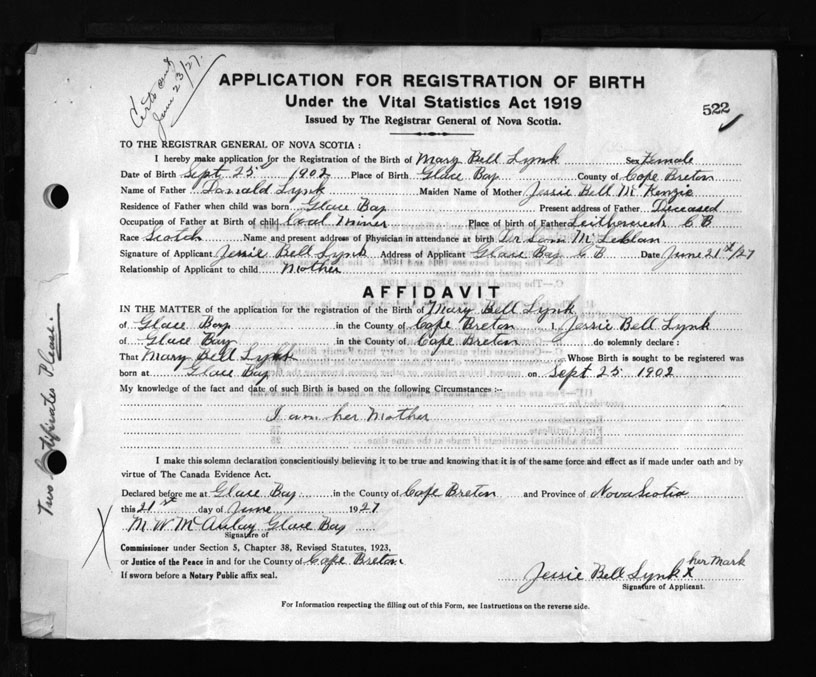 Certs Sent
June 23/27.
APPLICATION FOR REGISTRATION OF BIRTH
Under the Vital Statistics Act 1919
Issued by The Registrar General of Nova Scotia.
522
TO THE REGISTRAR GENERAL OF NOVA SCOTIA:
I hereby make application for the Registration of the Birth of Mary Bell Lynk Sex Female
Date of Birth Sept 25 1902 Place of Birth Glace Bay County of Cape Breton
Name of Father Donald Lynk Maiden Name of Mother Jessie Bell McKenzie
Residence of Father when child was born Glace Bay Present address of Father Deceased
Occupation of Father at Birth of child Coal Miner Place of birth of Father C B
Race Scotch Name and present address of Physician in attendance at birth Dr
Signature of Applicant Jessie Bell Lynk Address of Applicant Glace Bay C B Date June 21st/27
Relationship of Applicant to child Mother
AFFIDAVIT
IN THE MATTER of the application for the registration of the Birth of Mary Bell Lynk
of Glace Bay in the County of Cape Breton I, Jessie Bell Lynk
of Glace Bay in the County of Cape Breton do solemnly declare:
That Mary Bell Lynk Whose Birth is sought to be registered was
born at Glace Bay on Sept 25 1902
My knowledge of the fact and date of such Birth is based on the following Circumstances :--
I am her Mother
I make this solemn declaration conscientiously believing it to be true and knowing that it is of the same force and effect as if made under oath and by
virtue of The Canada Evidence Act.
Declared before me at Glace Bay in the County of Cape Breton and Province of Nova Scotia
this 21st day of June 1927
M. W. McAulay Glace Bay
Signature of
Commissioner under Section 5, Chapter 38, Revised Statutes, 1923,
or Justice of the Peace in and for the County of Cape Breton
If sworn before a Notary Public affix seal.
Jessie Bell Lynk X her Mark
Signature of Applicant.
For Information respecting the filling out of this Form, see Instructions on the reverse side.
Two Certificates Please.